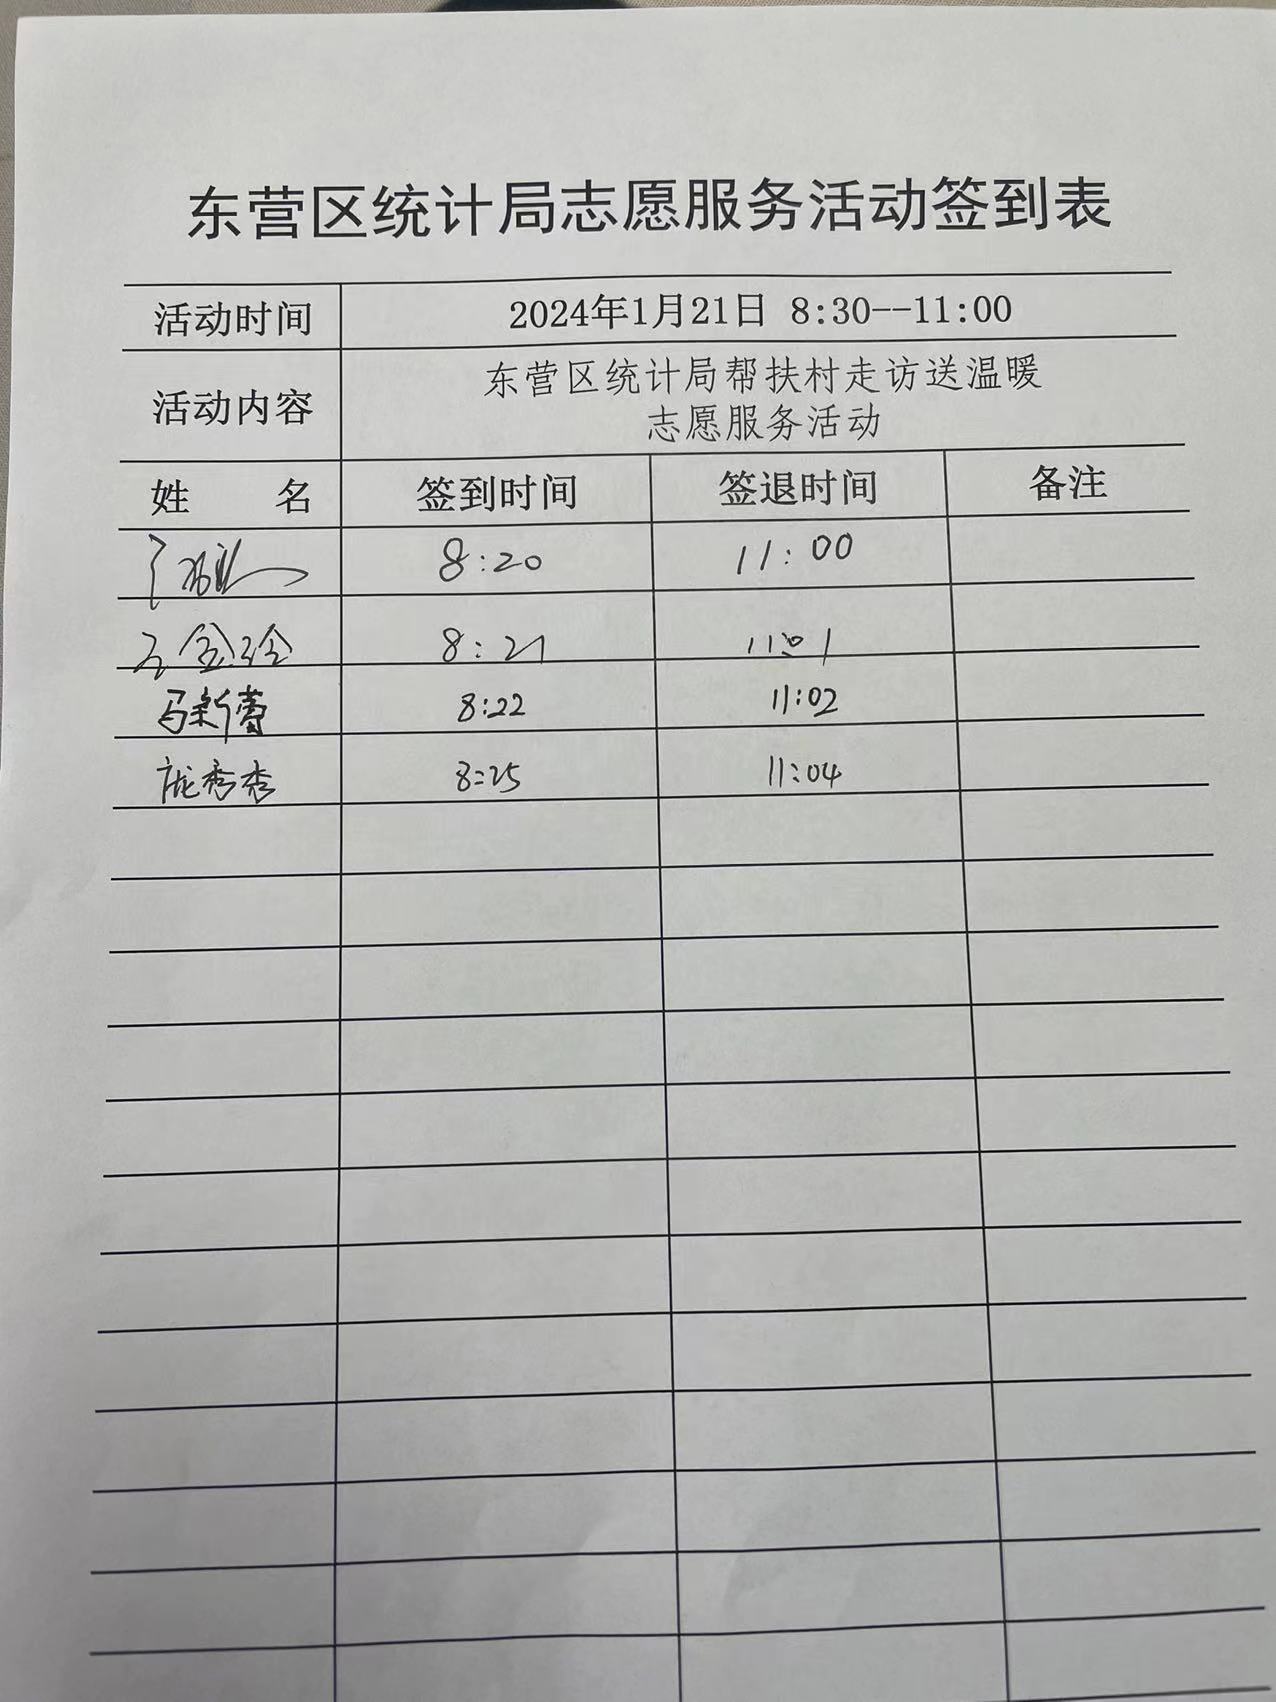 东营区统计局志愿服务活动签到表
活动时间 2024年1月21日 8:30--11:00
活动内容 东营区统计局帮扶村走访送温暖
志愿服务活动
姓 名 签到时间 签退时间 备注
8:20 11:00
8:21 11:01
马新蕾 8:22 11:02
庞秀秀 8:25 11:04